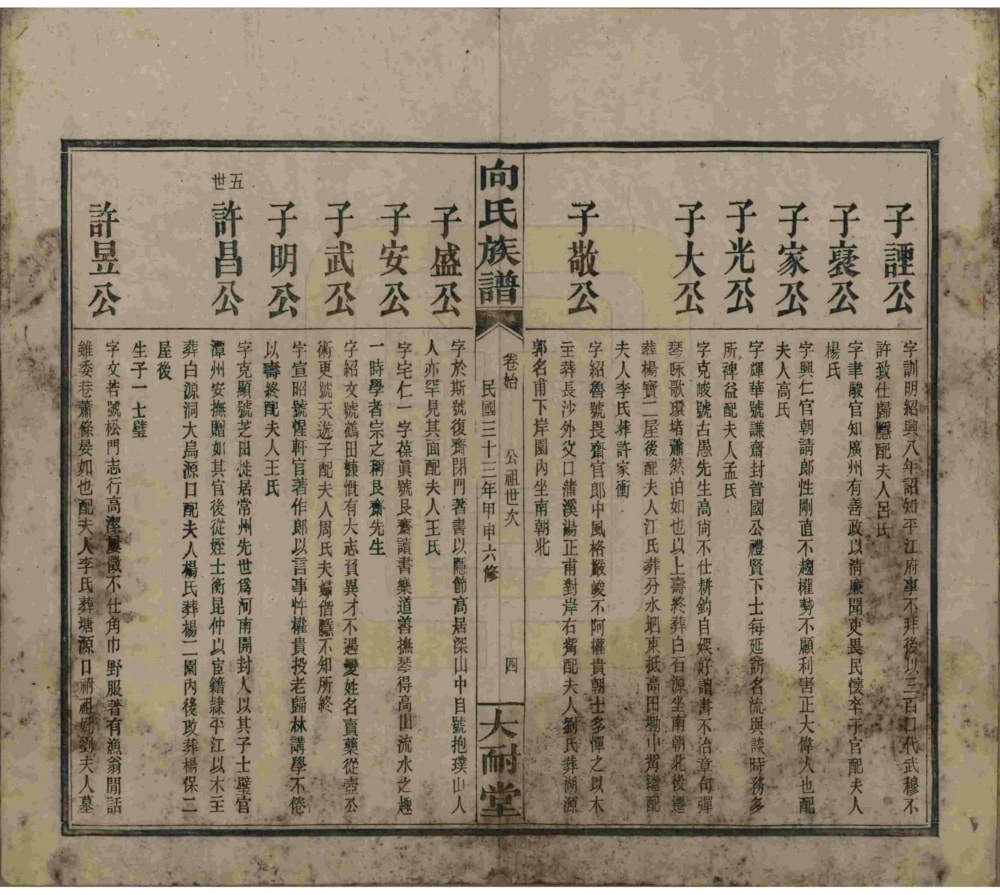 子諲公
字訓明紹興八年詔知平江府事不拜後以三百口代武穆不
許致仕歸隱配夫人呂氏
子裦公
字聿駿官知廣州有善政以淸廉聞吏畏民懷卒于官配夫人
楊氏
子家公
字興仁官朝請郎性剛直不趨權勢不顧利害正大偉人也配
夫人高氏
子光公
字輝華號謙齋封晉國公禮賢下士每延訪名流與談時務多
所裨益配夫人孟氏
子大公
字克峻號占愚先生高尙不仕耕釣自娛好讀書不治章句彈
琴咏歌環堵蕭然泊如也以上壽終葬白石源坐南朝北後遷
葬楊寶二屋後配夫人江氏葬分水坳東抵高田坳中黃繼配
夫人李氏葬許家衝
子敬公
字紹魯號畏齋官郎中風格嚴峻不阿權貴朝士多憚之以木
主葬長沙外文口蒲溪湯正甫對岸右觜配夫人劉氏葬湖源
郭名甫下岸園內坐南朝北
向氏族譜
卷始
公祖世次
民國三十三年甲申六修
四
大耐堂
子盛公
字於斯號復齋閉門著書以隱節高居深山中自號抱璞山人
人亦罕見其面配夫人王氏
子安公
字宅仁一字葆眞號艮齋讀書樂道善撫琴得高山流水之趣
一時學者宗之稱艮齋先生
子武公
字紹文號鶴田慷慨有大志負異才不遇變姓名賣藥從壺公
術更號天遊子配夫人周氏夫婦偕隱不知所終
子明公
字宣昭號惺軒官著作郎以言事忤權貴投老歸林講學不倦
以壽終配夫人王氏
五世
許昌公
字克顯號芝田徙居常州先世爲河南開封人以其子士璧官
潭州安撫贈如其官後從姪士衡昆仲以宦籍隷平江以木主
葬白源洞大烏源口配夫人楊氏葬楊二園內後改葬楊保二
屋後
生子一 士璧
許昱公
字文若號松門志行高潔屢徵不仕角巾野服著有漁翁閒話
雖委巷蕭條晏如也配夫人李氏葬塘源口祔祖妣劉夫人墓